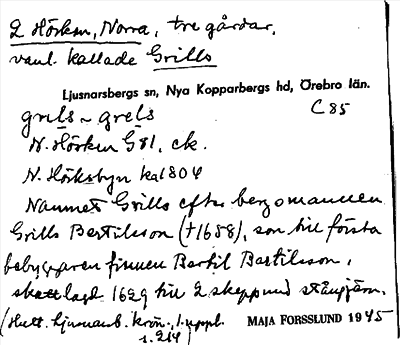 2 Hörken, Norra, tre gårdar,
vanl. kallade Grills
Ljusnarsbergs sn, Nya Kopparbergs hd, Örebro län.
C 85
grils ~ grels
N. Hörken G 81, ek.
N. Hörksbyn ka 1804
Namnet Grills efter bergsmannen
Grills Bertilsson (†1688), son till första
bebyggaren finnen Bertil Bertilsson,
skattlagd 1629 till 2 skeppund stångjärn.
(Hult. Ljusnarsb. krön., 1. uppl.
s. 214)
MAJA FORSSLUND 1945